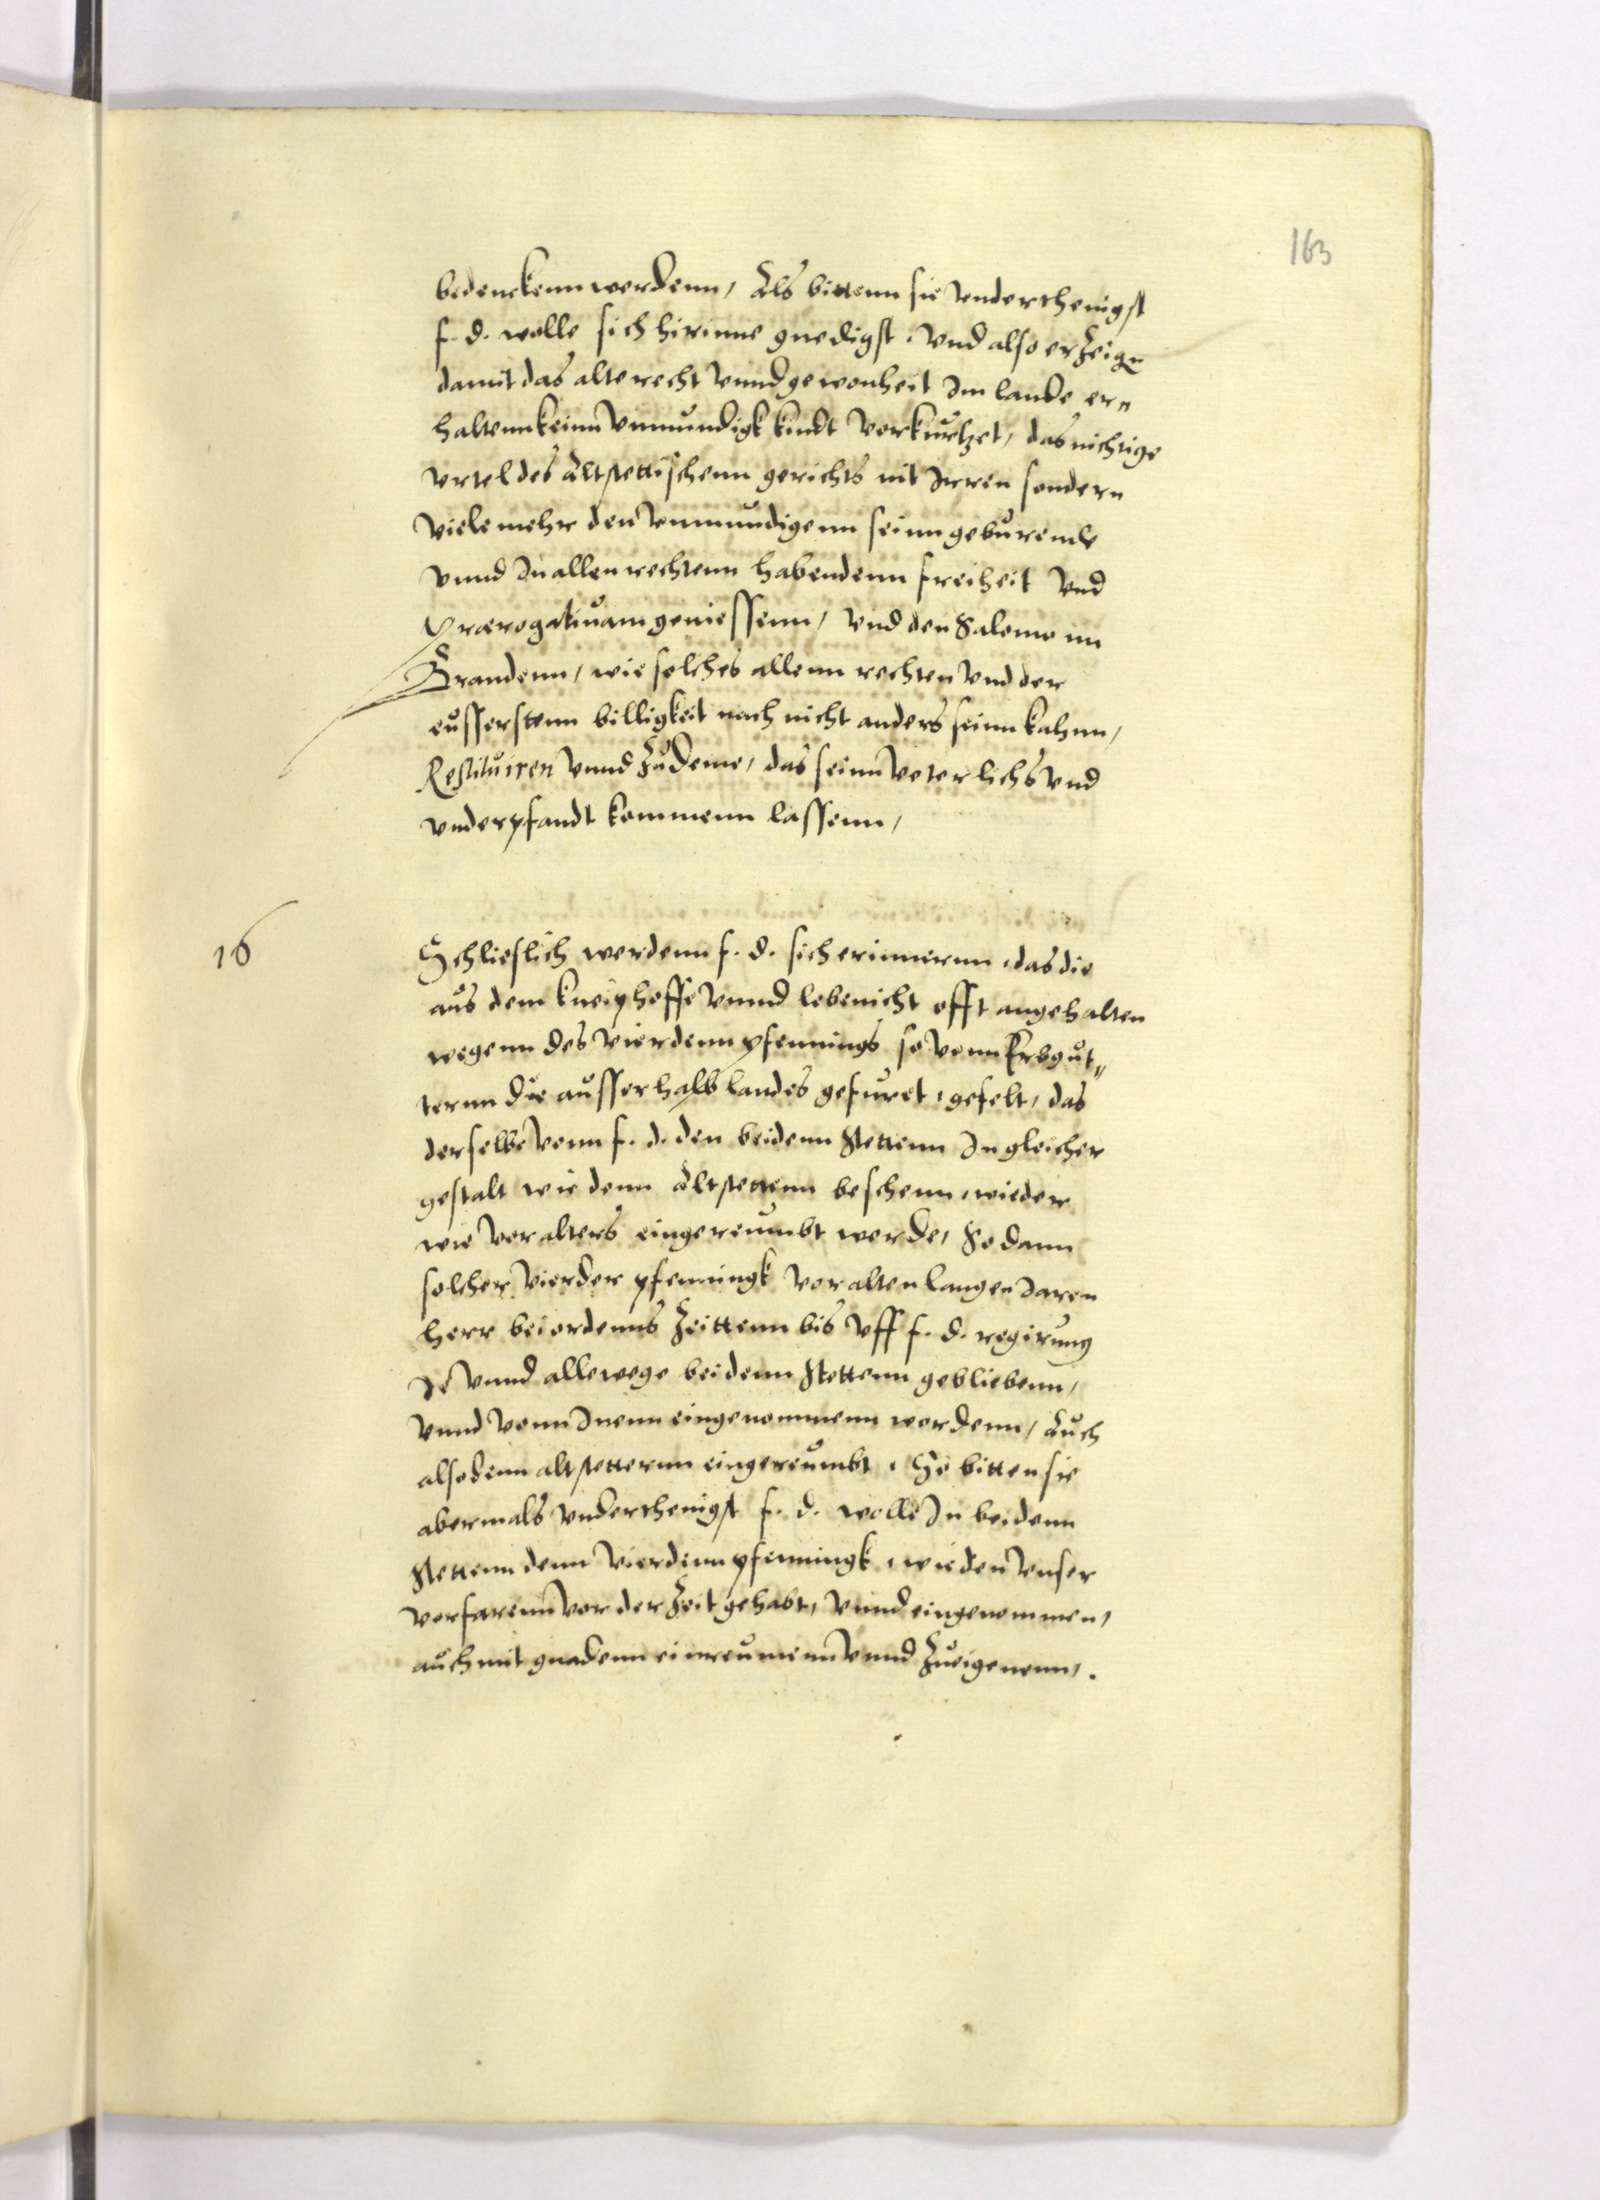 163
bedenckenn werdenn, Als bittenn sie underthenigst
f. d. wolle sich hirinne gnedigst, und also erzeigen
damit das alte recht unnd gewonheit Im lande er„
haltenn keinn unmundigk kindt vorkurtzet, das nichtige
urtel des Altstettischenn gerichts nit Irren sondern
viele mehr den unmundigenn seinn geburende
unnd In allen rechtenn habendenn freiheit und
Prærogativam geniessenn, und den Salomonn
Brandenn, wie solches allenn rechten und der
eusserstenn billigkeit nach nicht anders seinn kahnn,
Restituiren unnd zudeme, das seinn veterlichs und
underpfandt kommenn lassenn,
16
Schlieslich werdenn f. d. sich erinnernn, das die
aus dem kneiphoffe unnd lebenicht offt angehalten
wegenn des vierdenn pfennings so vonn Erbgut„
ternn die ausserhalb landes gefuret, gefelt, das
derselbe vonn f. d. den beidenn Stettenn In gleicher
gestalt wie denn Altstettenn beschenn, wieder
wie vor alters eingereumbt werde, So dann
solcher vierder pfenningk vor alten langen Jaren
herr bei ordenns Zeittenn bis uff f. d. regirung
Je unnd allewege bei denn Stettenn gebliebenn,
unnd vonn Inenn eingenommenn wordenn, Auch
also denn altstetternn eingereumbt, So bitten sie
abermals underthenigst f. d. wolle In beidenn
Stettenn denn vierdenn pfenningk, wie den unser
vorfarenn vor der Zeit gehabt, unnd eingenommen,
auch mit gnadenn einreumenn unnd Zueigenenn,.